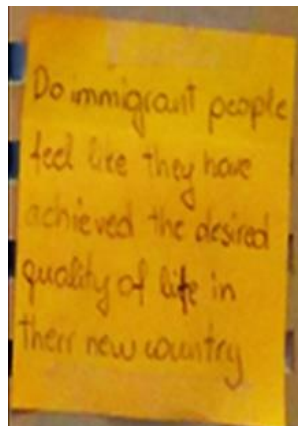 Do immigrant people
feel like they have
achieved the desired
quality of life in
their new country